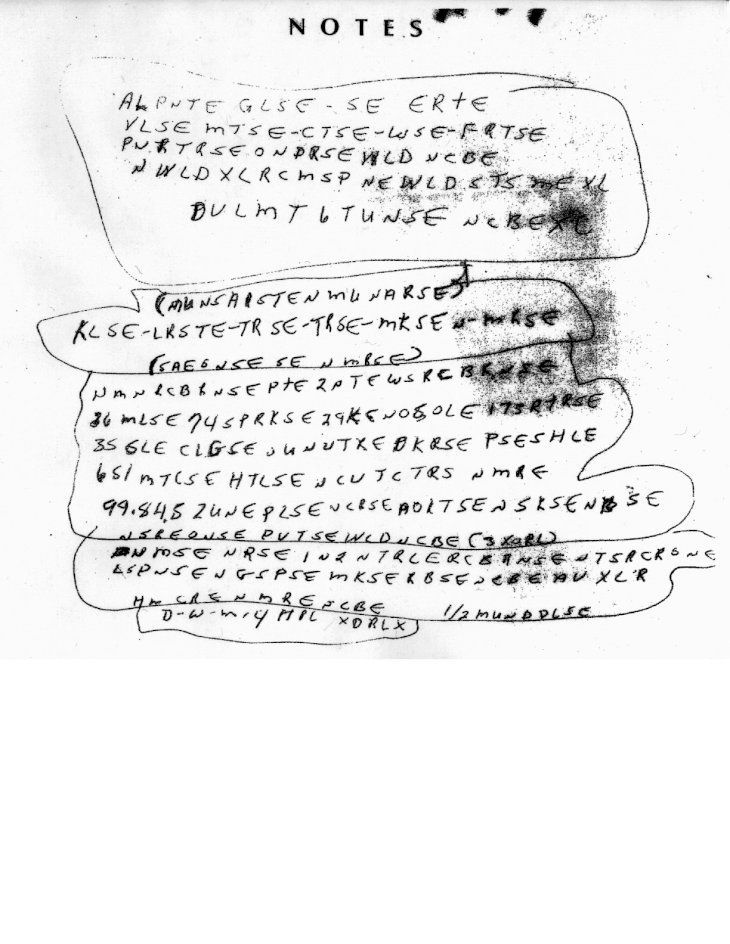 NOTES
ALPNTE GLSE-SE ERTE
VLSE MTSE-CTSE-WSE-FRTSE
PNRTRSE ONDRSE WLD NCBE
NWLDXLRCMSP NEWLDSTSMEXL
DULMT 6 TUNSE NCBEXC
(MUNSARSTEN MUNARSE)
KLSE-LRSTE-TRSE-TRSE-MKSEN-MRSE
(SAE6NSE SE NMRSE)
NMNRCBRNSE PTE2PTEWSRCBRNSE
36 MLSE 74 SPRKSE 29KENOSOLE 173RTRSE
35 GLE CLGSE UNUTXE DKRSE PSESHLE
651 MTCSE HTLSE NCUTCTRS NMRE
99.84.5 2UNEPLSE NCRSE AOLTSENSKSENBSE
NSREONSE PUTSEWLDNCBE (3XORL)
NMSE NRSE IN2NTRLERCBRNSE NTSRCRONE
LSPNSE NGSPSE MKSERBSE NCBE AUXLR
HMCRE NMRE NCBE 1/2 MUNDDLSE
D-W-M-4 MPL XDRLX